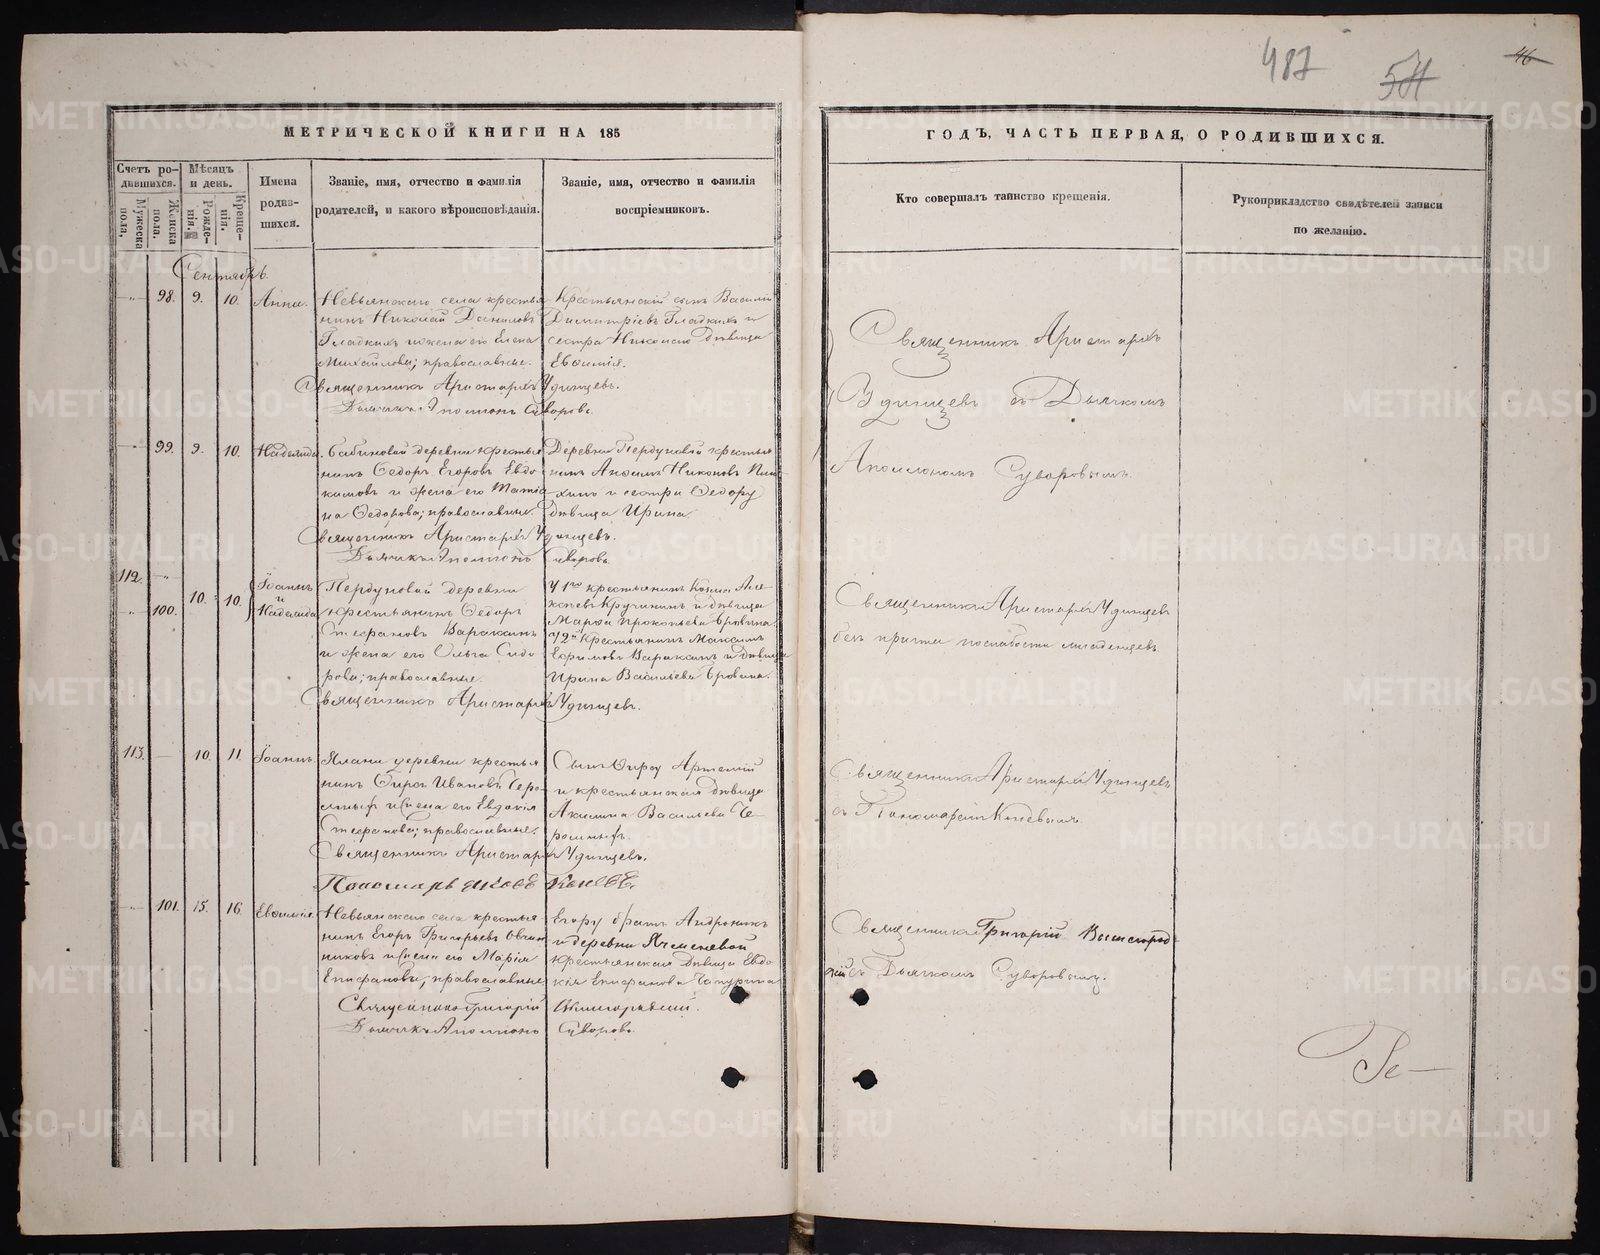 487
54
46
МЕТРИЧЕСКОЙ КНИГИ НА 185
ГОДЪ, ЧАСТЬ ПЕРВАЯ, О РОДИВШИХСЯ.
Счетъ ро-
дившихся.
Мужеска
пола.
Женска
пола.
Мѣсяцъ
и день.
Рожде-
нія.
Креще-
нія.
Имена
родив-
шихся.
Званіе, имя, отчество и фамилія
родителей, и какого вѣроисповѣданія.
Званіе, имя, отчество и фамилія
воспріемниковъ.
Кто совершалъ таинство крещенія.
Рукоприкладство свидѣтелей записи
по желанію.
Сентябрь
98. 9. 10. Анна.
Невьянскаго села крестья
нинъ Николай Даниловъ
Гладкихъ и жена его Елена
Михайлова; православные.
Крестьянскій сынъ Василій
Димитріевъ Гладкихъ и
сестра Николаю дѣвица
Евѳимія.
Священникъ Аристархъ Удинцевъ.
Дьячекъ Аполлонъ Суворовъ.
Священникъ Аристархъ
Удинцевъ съ Дьячкомъ
Аполлономъ Суворовымъ.
99. 9. 10. Надежда.
Бабиновой деревни крестья
нинъ Ѳедоръ Егоровъ Евдо
кимовъ и жена его Татія
на Ѳедорова; православные.
Деревни Пердуновой крестья
нинъ Никоновъ
и сестра Ѳедору
дѣвица Ирина.
Священникъ Аристархъ Удинцевъ.
Дьячекъ Аполлонъ Суворовъ.
112.
100. 10. 10. Іоаннъ
и
Надежда
Пердуновой деревни
крестьянинъ Ѳедоръ
Стефановъ Варакинъ
и жена его Ольга Сидо
рова; православные.
У 1го крестьянинъ Але
ксѣевъ и дѣвица
Марѳа Прокопьева
У 2й Крестьянинъ Максимъ
Ефимовъ Варакинъ и дѣвица
Ирина Васильева
Священникъ Аристархъ Удинцевъ.
Священникъ Аристархъ Удинцевъ
безъ причта по слабости младенцевъ.
113. 10. 11. Іоаннъ.
деревни крестья
нинъ Ивановъ
и жена его Евдокія
Стефанова; православные.
Сынъ Артемій
и крестьянская дѣвица
Акилина Васильева
Священникъ Аристархъ Удинцевъ.
Пономарь
Священникъ Аристархъ Удинцевъ
съ Пономаремъ
101. 15. 16. Евѳимія.
Невьянскаго села крестья
нинъ Егоръ Григорьевъ Овчин
никовъ и жена его Марія
Епифанова; православные
Егору братъ Андроникъ
и деревни Ячменевой
крестьянская дѣвица Евдо
кія Епифанова Чапурина
Священникъ Григорій
Дьячекъ Аполлонъ Суворовъ.
Священникъ Григорій
съ Дьячкомъ Суворовымъ.
METRIKI.GASO-URAL.RU